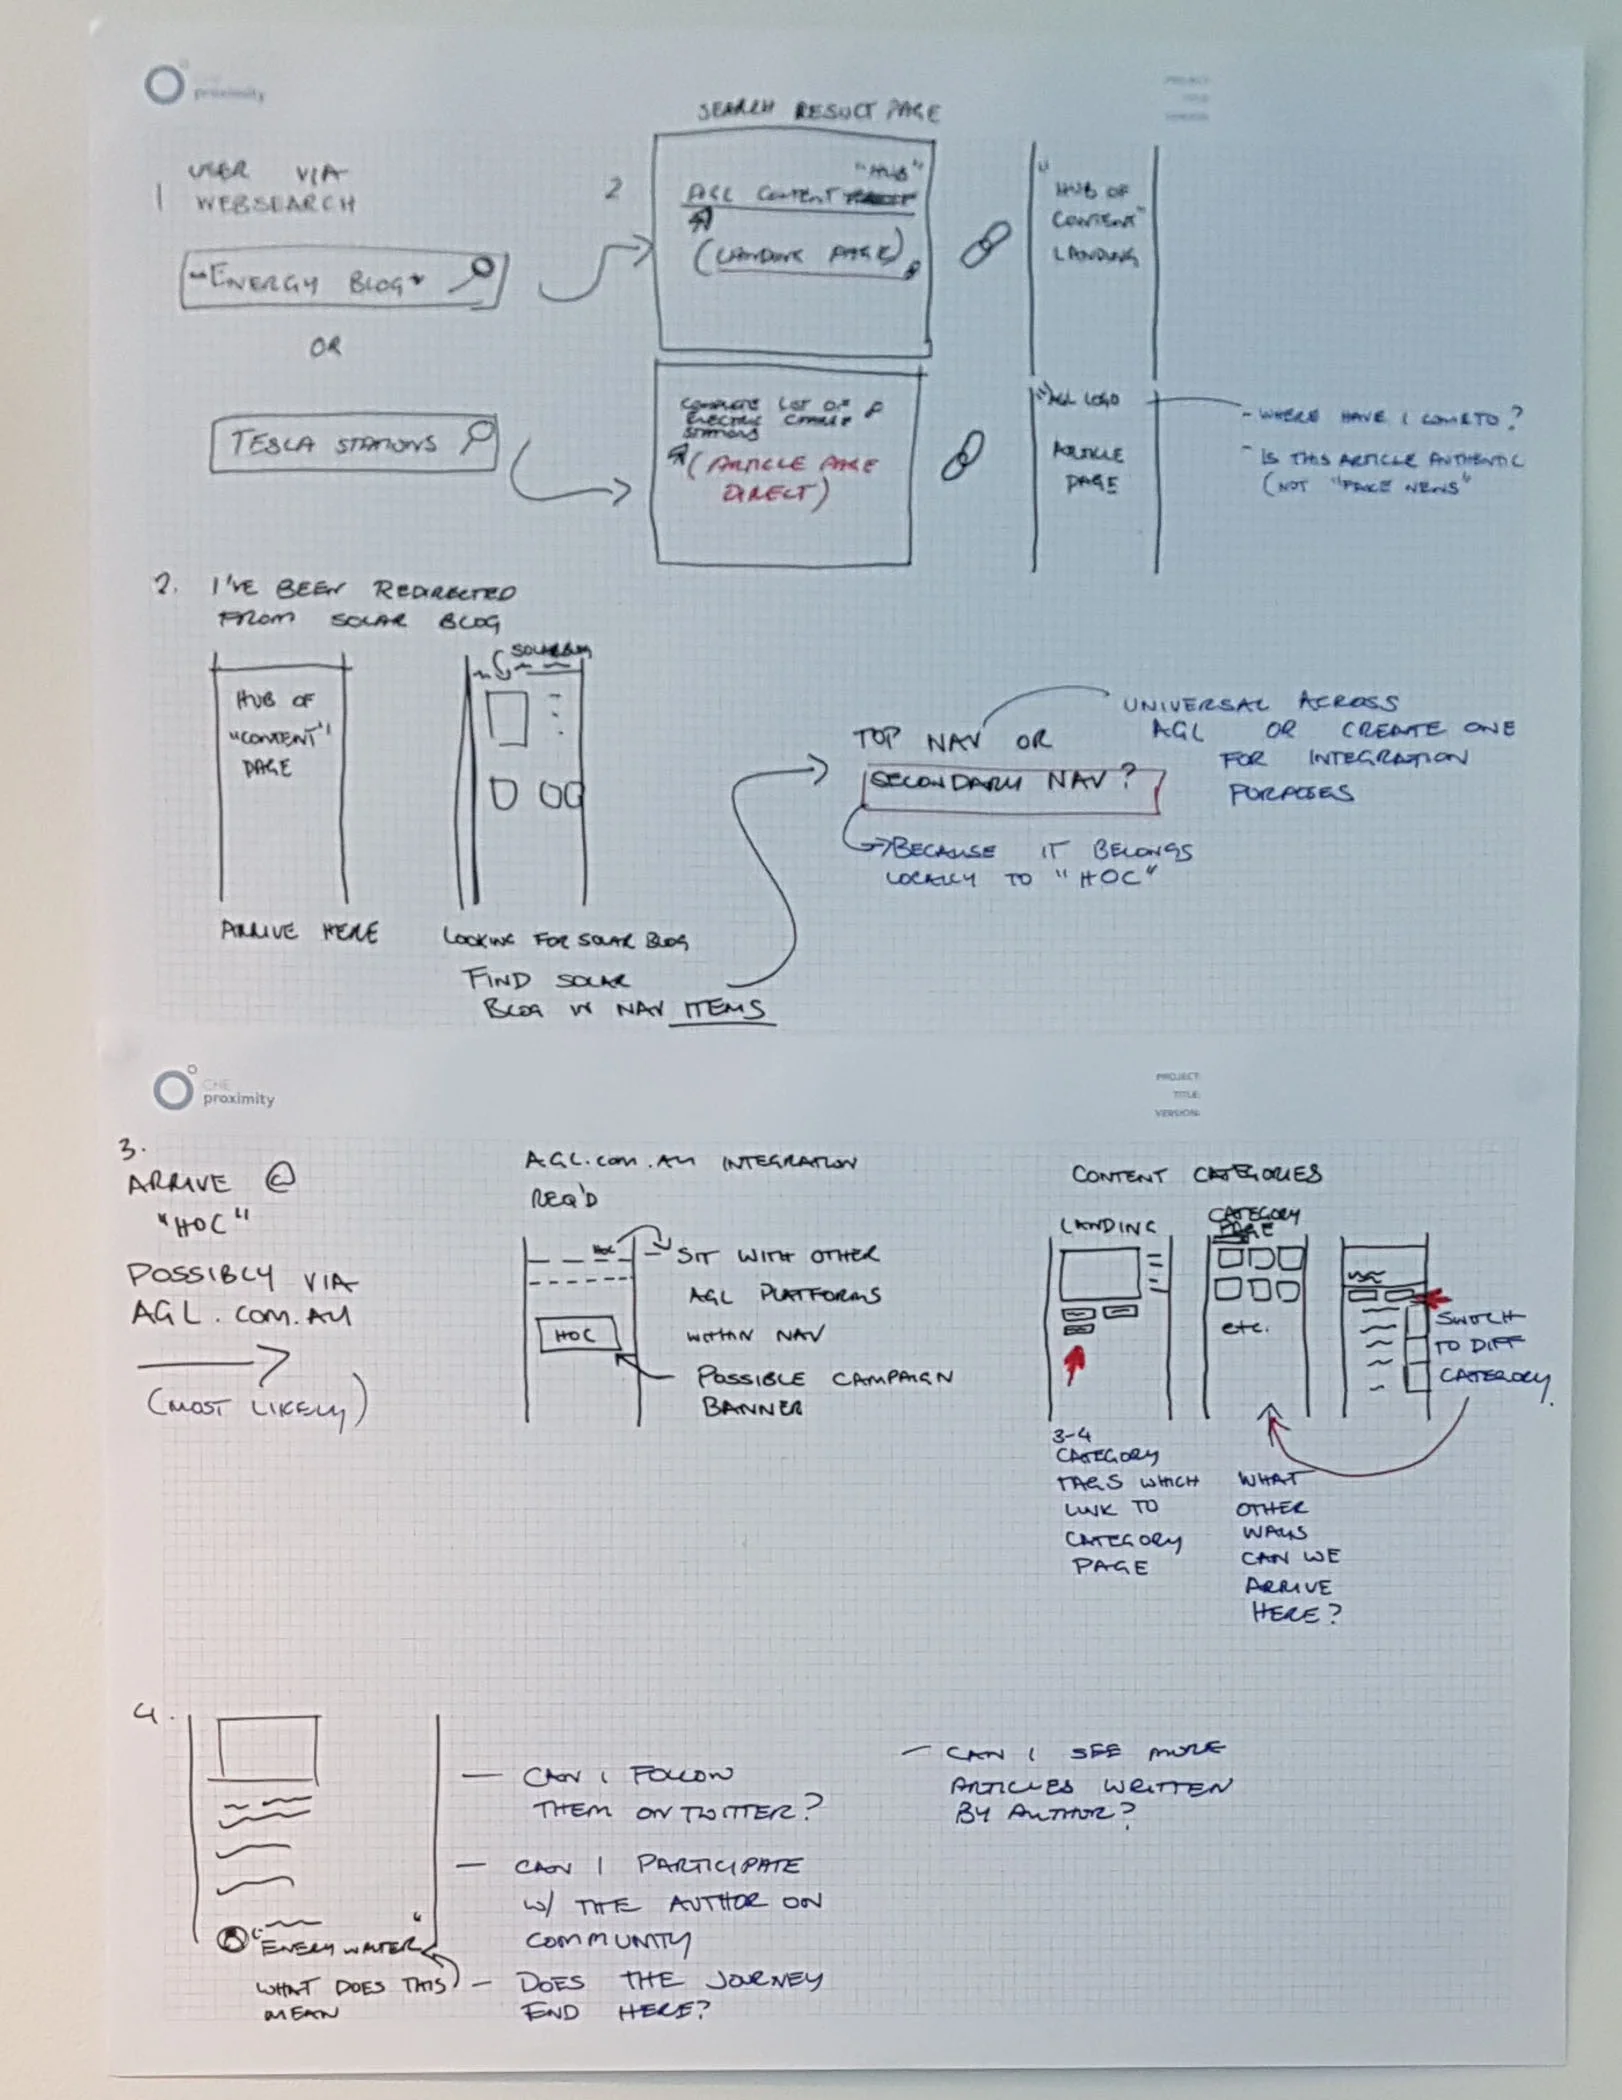 ONE
proximity
PROJECT:
TITLE:
VERSION:
SEARCH RESULT PAGE
1 USER VIA
WEBSEARCH
"ENERGY BLOG"
OR
TESLA STATIONS
2
"HUB"
AGL CONTENT
(LANDING PAGE)
"HUB OF
CONTENT"
LANDING
COMPLETE LIST OF
ELECTRIC CHARGE
STATIONS
(ARTICLE PAGE
DIRECT)
AGL LOGO
ARTICLE
PAGE
- WHERE HAVE I COME TO?
- IS THIS ARTICLE AUTHENTIC
(NOT "FAKE NEWS"
2. I'VE BEEN REDIRECTED
FROM SOLAR BLOG
HUB OF
"CONTENT"
PAGE
ARRIVE HERE
SOLAR BLOG
LOOKING FOR SOLAR BLOG
FIND SOLAR
BLOG IN NAV ITEMS
TOP NAV OR
SECONDARY NAV?
UNIVERSAL ACROSS
AGL OR CREATE ONE
FOR INTEGRATION
PURPOSES
BECAUSE IT BELONGS
LOCALLY TO "HOC"
ONE
proximity
PROJECT:
TITLE:
VERSION:
3.
ARRIVE @
"HOC"
POSSIBLY VIA
AGL.COM.AU
(MOST LIKELY)
AGL.COM.AU INTEGRATION
REQ'D
HOC
- SIT WITH OTHER
AGL PLATFORMS
WITHIN NAV
HOC
POSSIBLE CAMPAIGN
BANNER
CONTENT CATEGORIES
LANDING
CATEGORY
PAGE
etc.
SWITCH
TO DIFF
CATEGORY.
3-4
CATEGORY
TAGS WHICH
LINK TO
CATEGORY
PAGE
WHAT
OTHER
WAYS
CAN WE
ARRIVE
HERE?
4.
"ENERY WRITER"
WHAT DOES THIS
MEAN
- CAN I FOLLOW
THEM ON TWITTER?
- CAN I PARTICIPATE
W/ THE AUTHOR ON
COMMUNITY
- DOES THE JOURNEY
END HERE?
- CAN I SEE MORE
ARTICLES WRITTEN
BY AUTHOR?